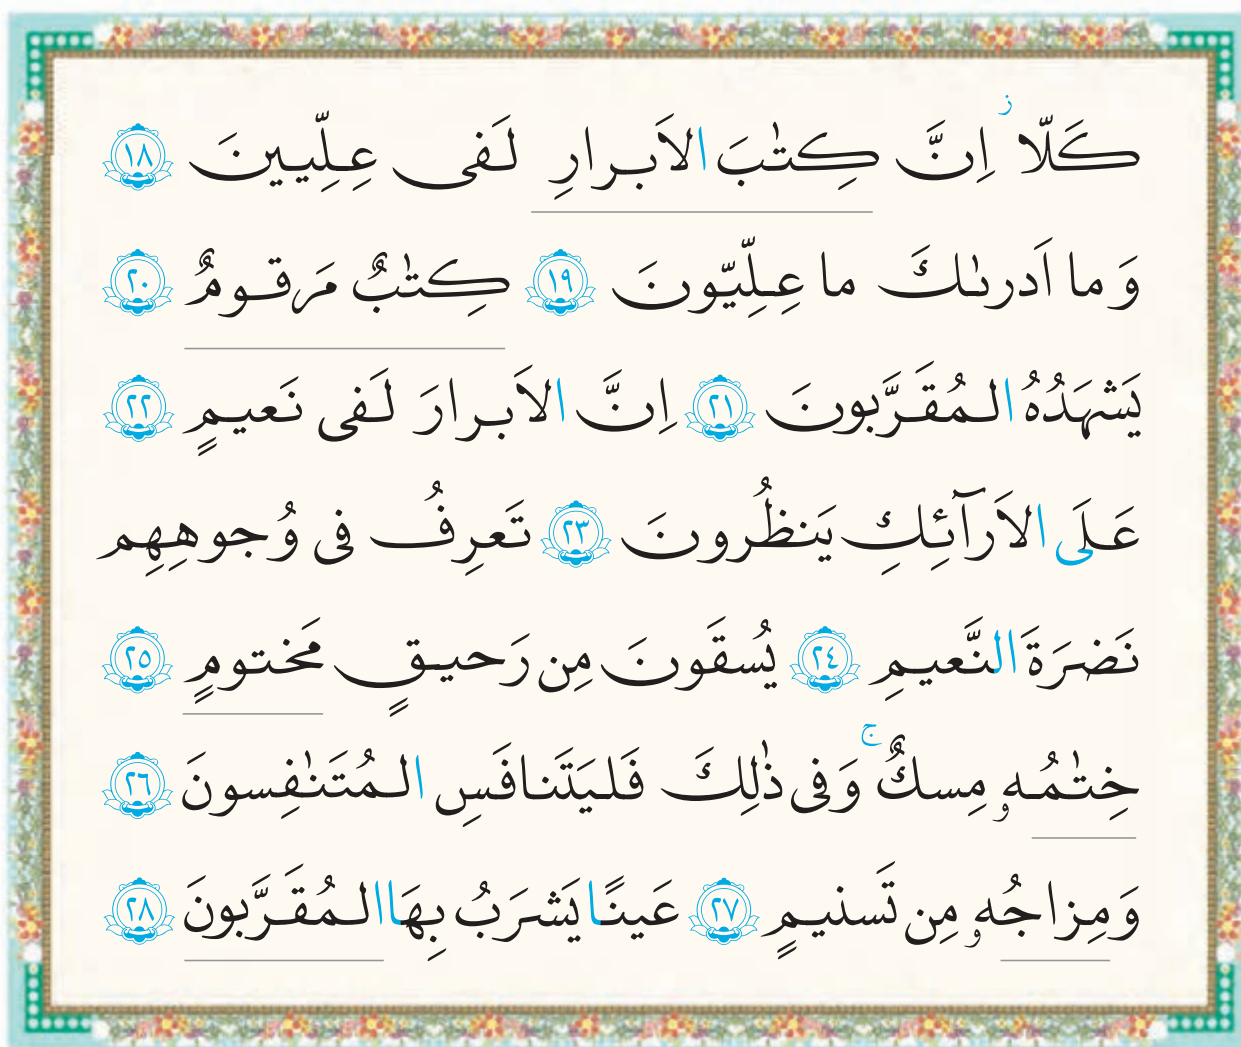 كَلّا ۖز اِنَّ كِتٰبَ الاَبرارِ لَفی عِلِّیینَ ١٨
وَ ما اَدرىٰكَ ما عِلِّیّونَ ١٩ كِتٰبٌ مَرقومٌ ٢٠
یَشهَدُهُ المُقَرَّبونَ ٢١ اِنَّ الاَبرارَ لَفی نَعیمٍ ٢٢
عَلَى الاَرآئِكِ یَنظُرونَ ٢٣ تَعرِفُ فی وُجوهِهِم
نَضرَةَ النَّعیمِ ٢٤ یُسقَونَ مِن رَحیقٍ مَختومٍ ٢٥
خِتٰمُهو مِسكٌ ۚ وَ فی ذٰلِكَ فَلیَتَنافَسِ المُتَنٰفِسونَ ٢٦
وَ مِزاجُهو مِن تَسنیمٍ ٢٧ عَینًا یَشرَبُ بِهَا المُقَرَّبونَ ٢٨